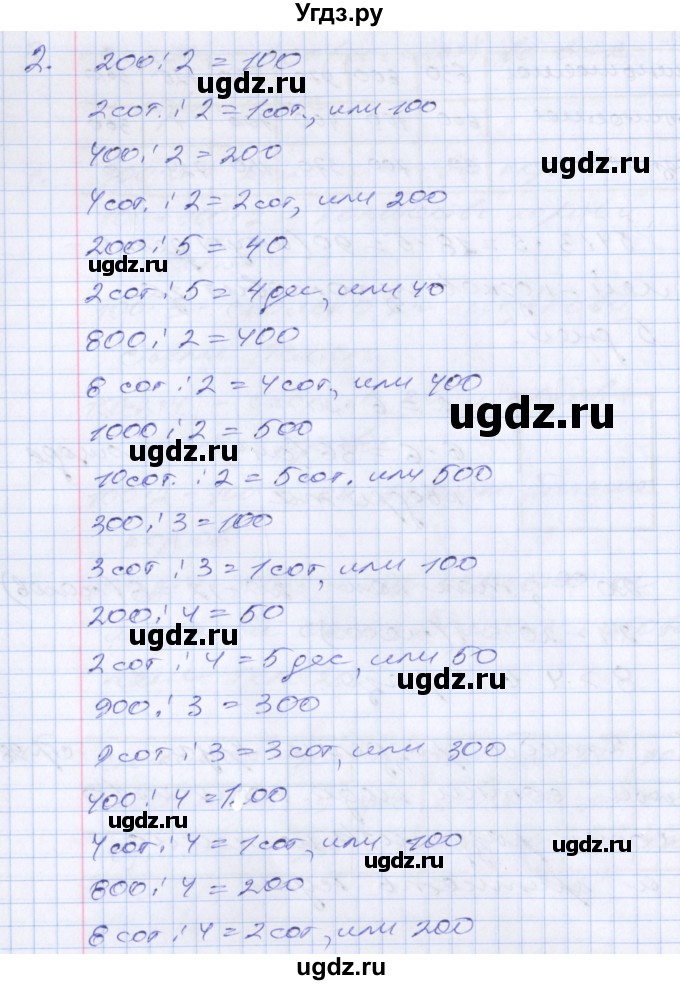 Угдз.ру
2. 200 : 2 = 100
ugdz.ru
2 сот. : 2 = 1 сот., или 100
400 : 2 = 200
ugdz.ru
4 сот. : 2 = 2 сот, или 200
200 : 5 = 40
ugdz.ru
2 сот : 5 = 4 дес, или 40
800 : 2 = 400
8 сот : 2 = 4 сот., или 400
ugdz.ru
1000 : 2 = 500
ugdz.ru
10 сот. : 2 = 5 сот. или 500
300 : 3 = 100
3 сот : 3 = 1 сот, или 100
200 : 4 = 50
ugdz.ru
2 сот : 4 = 5 дес, или 50
ugdz.ru
900 : 3 = 300
9 сот : 3 = 3 сот, или 300
400 : 4 = 100
ugdz.ru
4 сот : 4 = 1 сот, или 100
ugdz.ru
ugdz.ru
800 : 4 = 200
8 сот : 4 = 2 сот, или 200
ugdz.ru